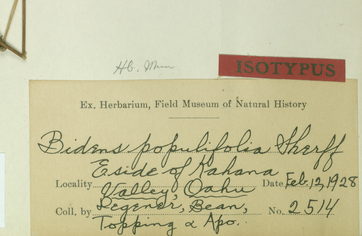 Hb. Mun
ISOTYPUS
Ex. Herbarium, Field Museum of Natural History
Bidens populifolia Sherff
E side of Kahana
Locality Valley, Oahu Date Feb. 12, 1928
Coll. by Degener, Bean, No. 2514
Topping & Apo.